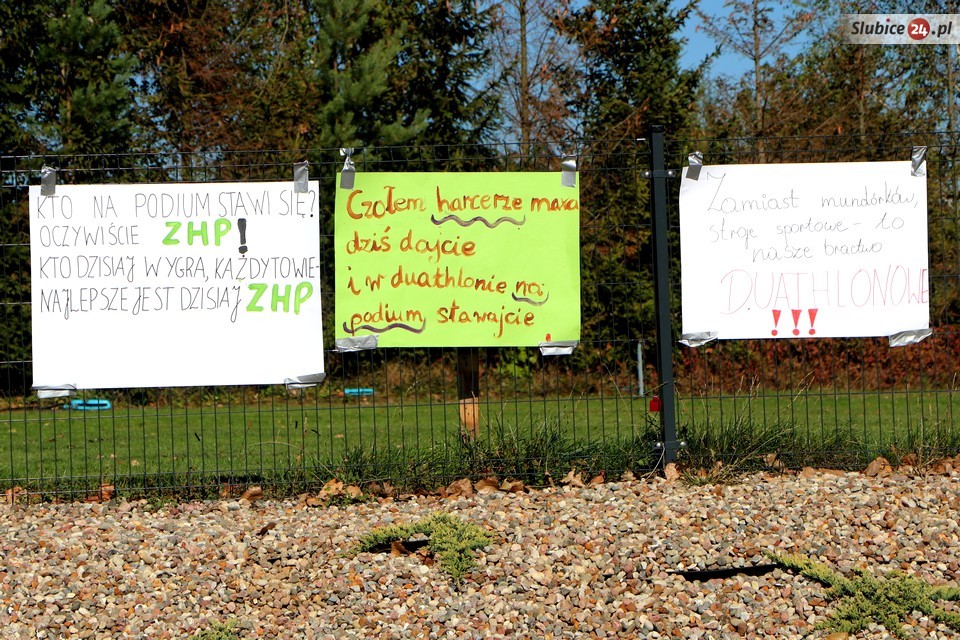 Slubice24.pl
KTO NA PODIUM STAWI SIĘ?
OCZYWIŚCIE ZHP!
KTO DZISIAJ WYGRA, KAŻDY TO WIE-
NAJLEPSZE JEST DZISIAJ ZHP
Czołem harcerze
dziś dajcie
i w duathlonie na
podium stawajcie
Zamiast mundórków,
stroje sportowe - to
nasze bractwo
DUATHLONOWE
!!!